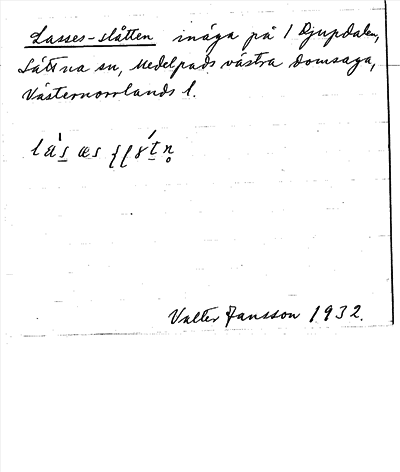 Lasses-slåtten inäga på 1 Djupdalen,
Sättna sn, Medelpads västra domsaga,
Västernorrlands l.
Valter Jansson 1932.